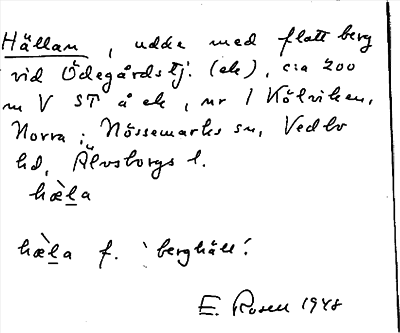 Hällan, udde med flatt berg
vid Ödegårdstj. (ek), c:a 200
m V ST å ek, nr 1 Kölviken,
Norra; Nössemarks sn, Vedbo
hd, Älvsborgs l.
hæ̀l̲a
hæ̀l̲a f. 'berghäll'.
E. Rosell 1948